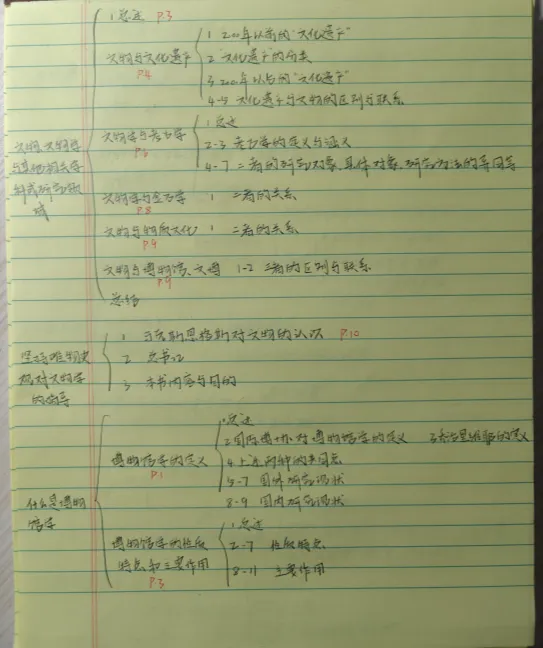 1 总述 P.3
文物与文化遗产 P.4
1 2001年以前的"文化遗产"
2 "文化遗产"的分类
3 2001年以后的"文化遗产"
4-5 文化遗产与文物的区别与联系
文物、文物学与其他相关学科或研究领域
文物学与考古学 P.6
1 总述
2-3 考古学的定义与涵义
4-7 二者的研究对象、具体对象、研究方法的异同等
文物学与金石学 P.8 1 二者的关系
文物与物质文化 P.9 1 二者的关系
文物与博物馆、文博 P.9 1-2 三者的区别与联系
总结
坚持唯物史观对文物学的指导
1 马克斯恩格斯对文物的认识 P.10
2
3 本书内容与目的
什么是博物馆学
博物馆学的定义 P.1
1 总述
2 国内 对博物馆学的定义 3 的定义
4 上述两种的共同点
5-7 国外研究现状
8-9 国内研究现状
博物馆学的性质特点和主要作用 P.3
1 总述
2-7 性质特点
8-11 主要作用